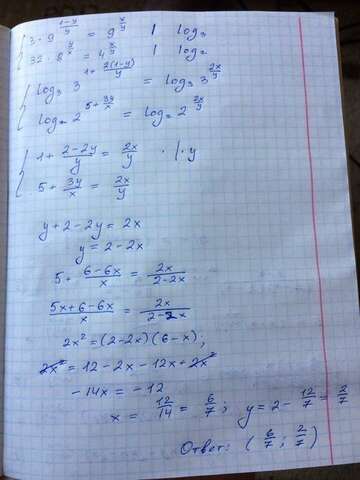 { 3·9^((1-y)/y) = 9^(x/y) | log₃
{ 32·8^(y/x) = 4^(x/y) | log₂
{ log₃ 3^(1+2(1-y)/y) = log₃ 3^(2x/y)
{ log₂ 2^(5+3y/x) = log₂ 2^(2x/y)
{ 1 + (2-2y)/y = 2x/y · | · y
{ 5 + 3y/x = 2x/y
y + 2 - 2y = 2x
y = 2 - 2x
5 + (6-6x)/x = 2x/(2-2x)
(5x+6-6x)/x = 2x/(2-2x)
2x² = (2-2x)(6-x);
2x² = 12 - 2x - 12x + 2x²
-14x = -12
x = 12/14 = 6/7; y = 2 - 12/7 = 2/7
Ответ: (6/7; 2/7)